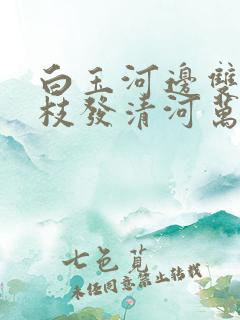 白玉河邊雙
枝發清河萬
七色菟
未经同意禁止转载